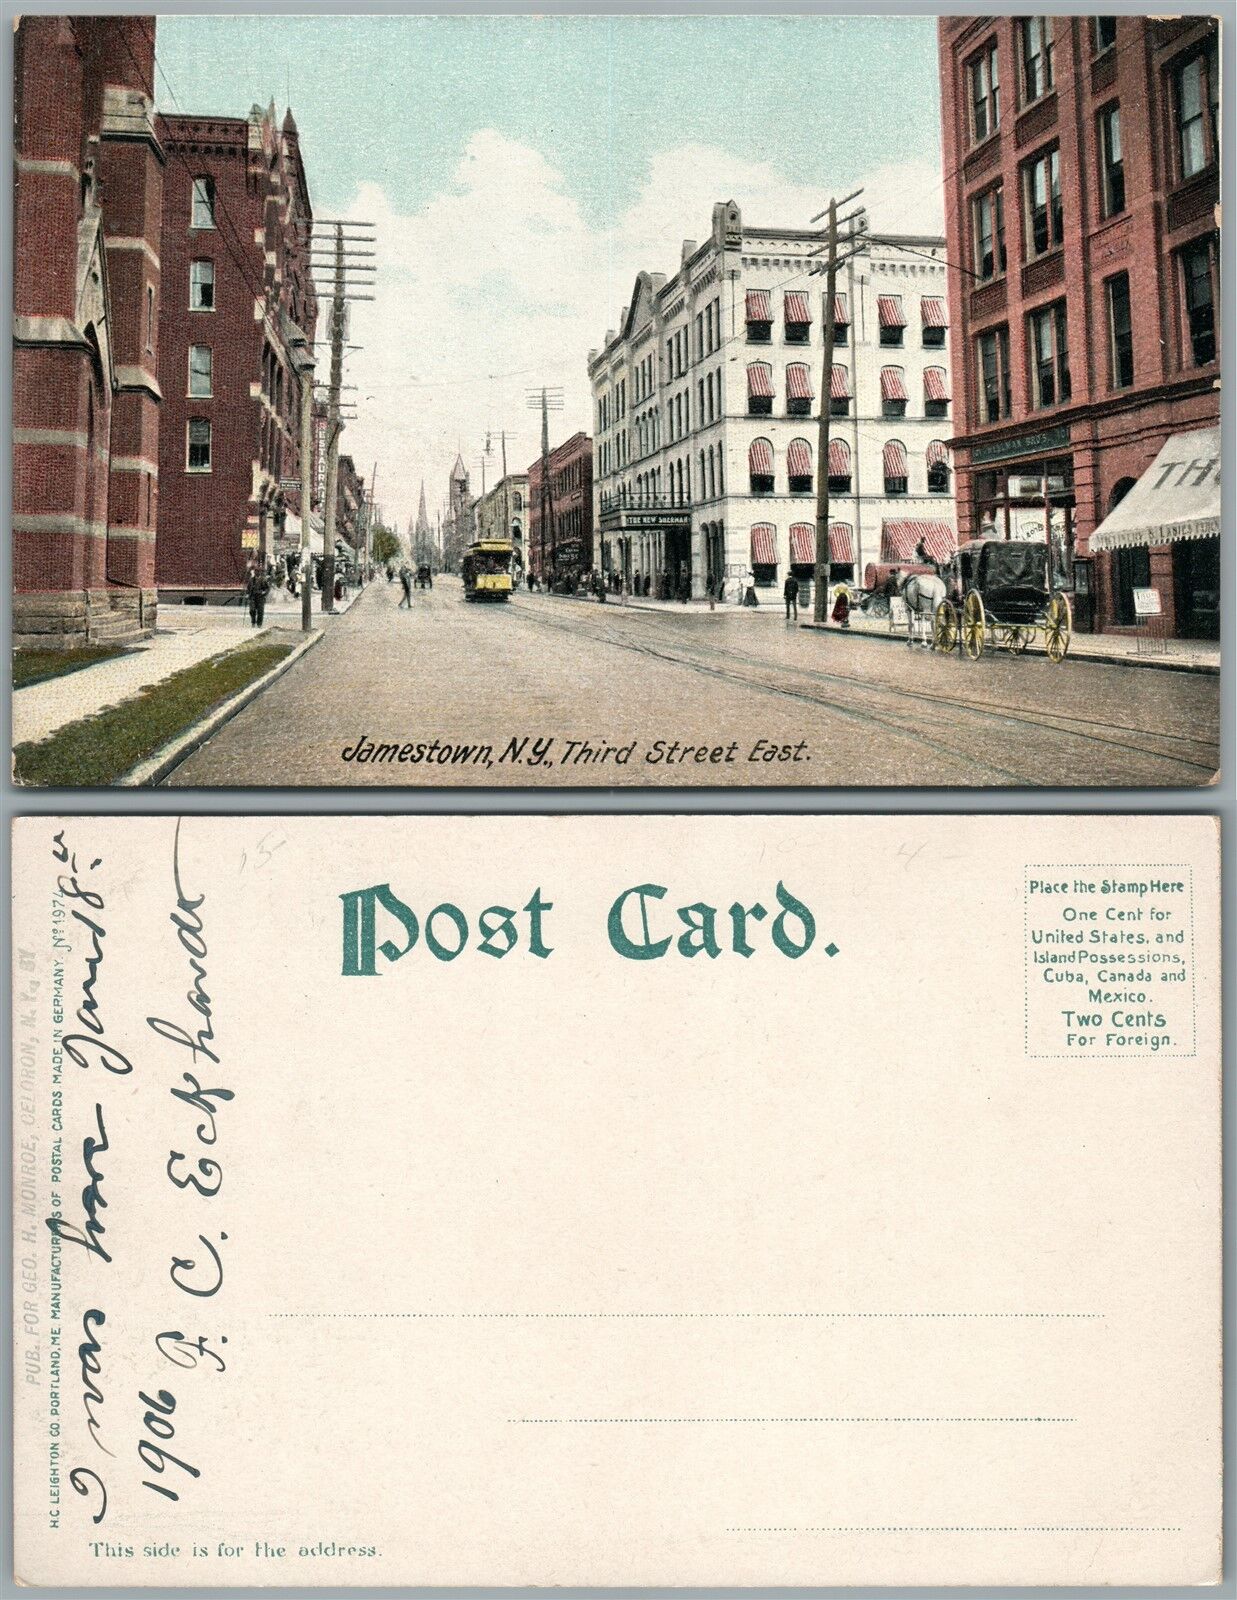 THE NEW SHERMAN
TH
Jamestown, N.Y., Third Street East.
Post Card.
Place the Stamp Here
One Cent for
United States, and
Island Possessions,
Cuba, Canada and
Mexico.
Two Cents
For Foreign.
PUB. FOR GEO. H. MONROE, CELORON, N. Y. BY
H.C. LEIGHTON CO. PORTLAND, ME. MANUFACTURERS OF POSTAL CARDS. MADE IN GERMANY. No 1974
I was here
1906 F. C. Eckhardt
This side is for the address.